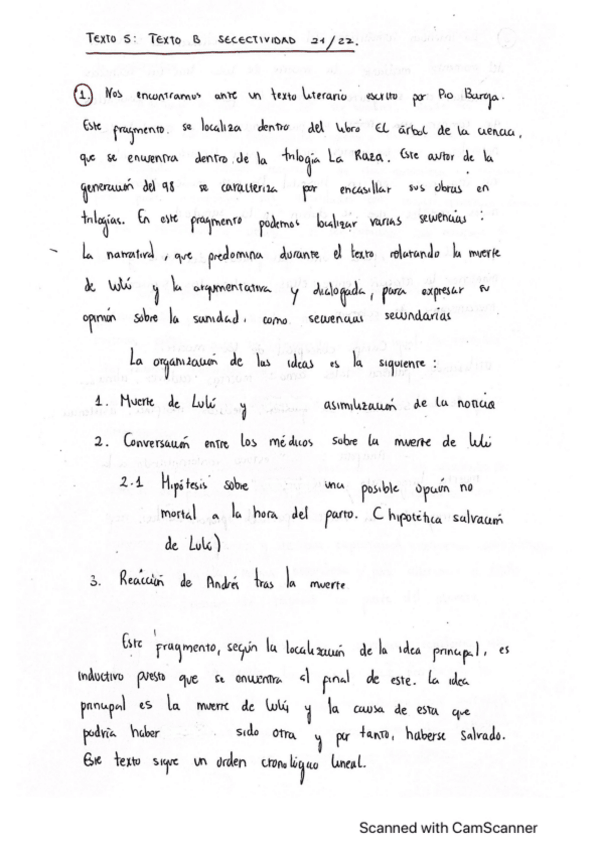 TEXTO 5: TEXTO B SECECTIVIDAD 21/22.
1. Nos encontramos ante un texto literario escrito por Pío Baroja.
Este fragmento se localiza dentro del libro El árbol de la ciencia,
que se encuentra dentro de la trilogía La Raza. Este autor de la
generación del 98 se caracteriza por encasillar sus obras en
trilogías. En este fragmento podemos localizar varias secuencias :
La narrativa, que predomina durante el texto relatando la muerte
de Lulú y la argumentativa y dialogada, para expresar su
opinión sobre la sanidad, como secuencias secundarias
La organización de las ideas es la siguiente :
1. Muerte de Lulú y asimilización de la noticia
2. Conversación entre los médicos sobre la muerte de Lulú
2.1 Hipótesis sobre una posible opción no
mortal a la hora del parto. (hipotética salvación
de Lulú)
3. Reacción de Andrés tras la muerte
Este fragmento, según la localización de la idea principal, es
inductivo puesto que se encuentra al final de este. La idea
principal es la muerte de Lulú y la causa de esta que
podría haber sido otra y por tanto, haberse salvado.
Este texto sigue un orden cronológico lineal.
Scanned with CamScanner